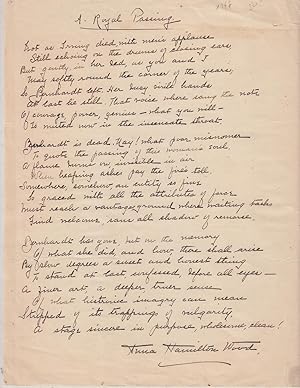 A Royal Passing
Not as Irving died with men's applause
Still echoing on the drums of closing ears,
But quietly in her bed, as you and I
May softly round the corner of the years,
So Bernhardt left. Her busy hands
At last lie still. That voice where sang the note
Of courage, power, genius – what you will –
Is muted now in the insensate throat.
Bernhardt is dead. Nay! what poor misnomer
To quote the passing of this woman's soul,
A flame burns on invisible in air
When heaping ashes pay the fire's toll.
Somewhere, somehow an entity so fine
So graced with all the attributes of
Must reach a vantage ground where waiting
Find welcome, sans all shadow of remorse.
Bernhardt has gone, but on the memory
Of what she did, and how, there shall arise
By slow degrees a sweet and honest thing
To stand at last surpassed, before all eyes –
A finer art, a deeper, truer sense
Of what histrionic imagery can mean
Stripped of its trappings of vulgarity,
A stage sincere in purpose, wholesome, clean!
Anna Hamilton Wood.